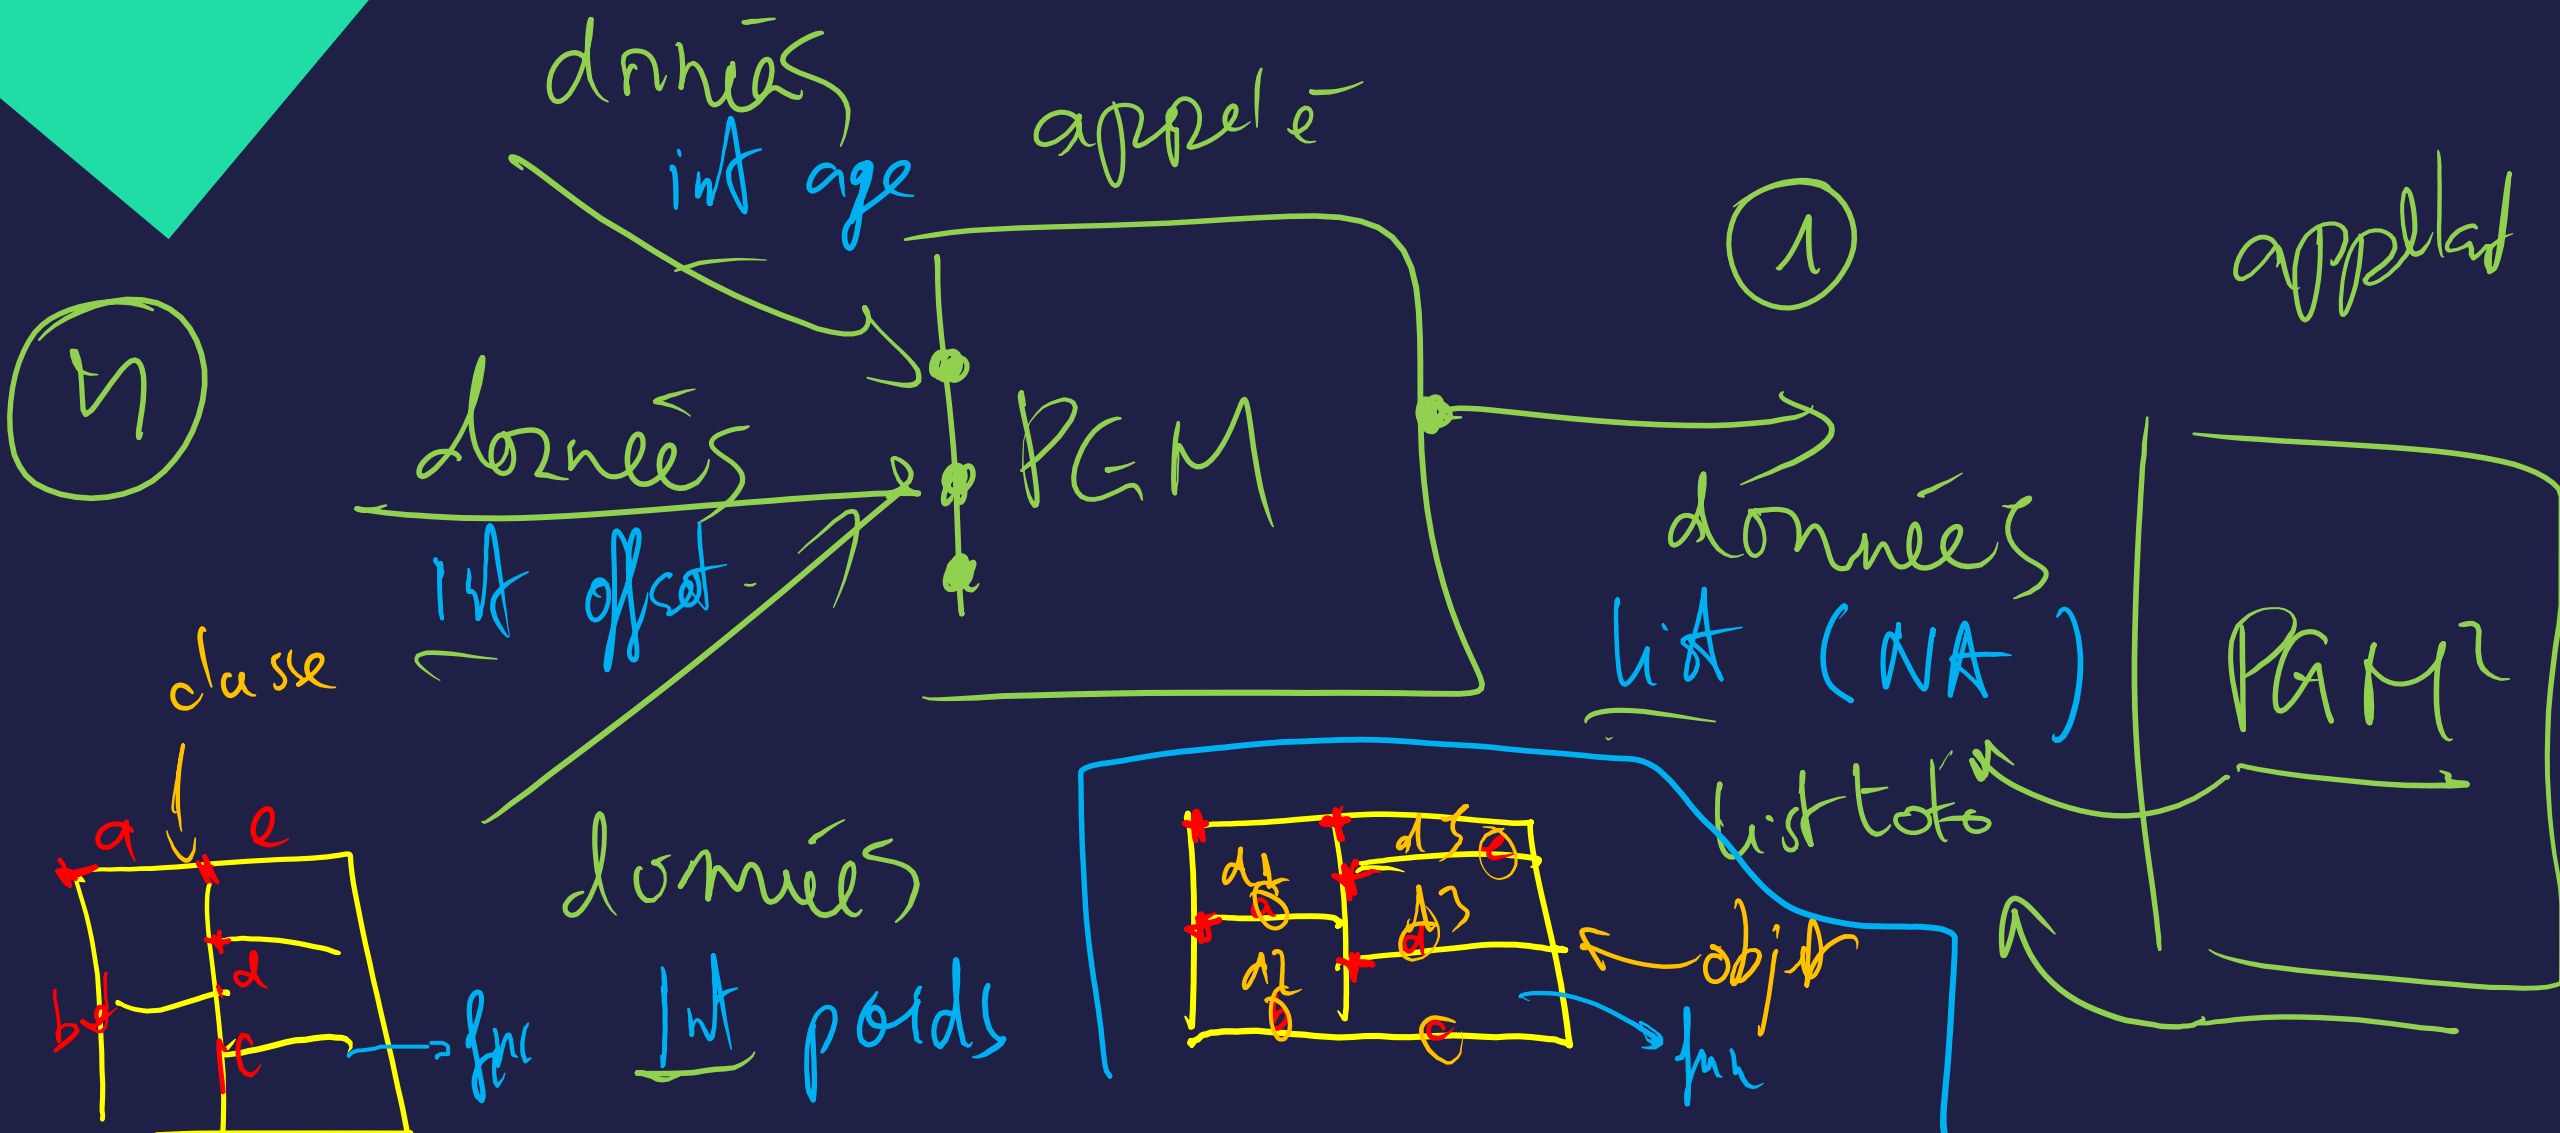 données
int age
appelé
1
appelant
n
données
int offset
PGM
données
list (NA)
PGM2
list toto
classe
a e
b d
c
fnc
données
Int poids
d1 a
d2 b
d3 e
d3 d
c
objet
fnc